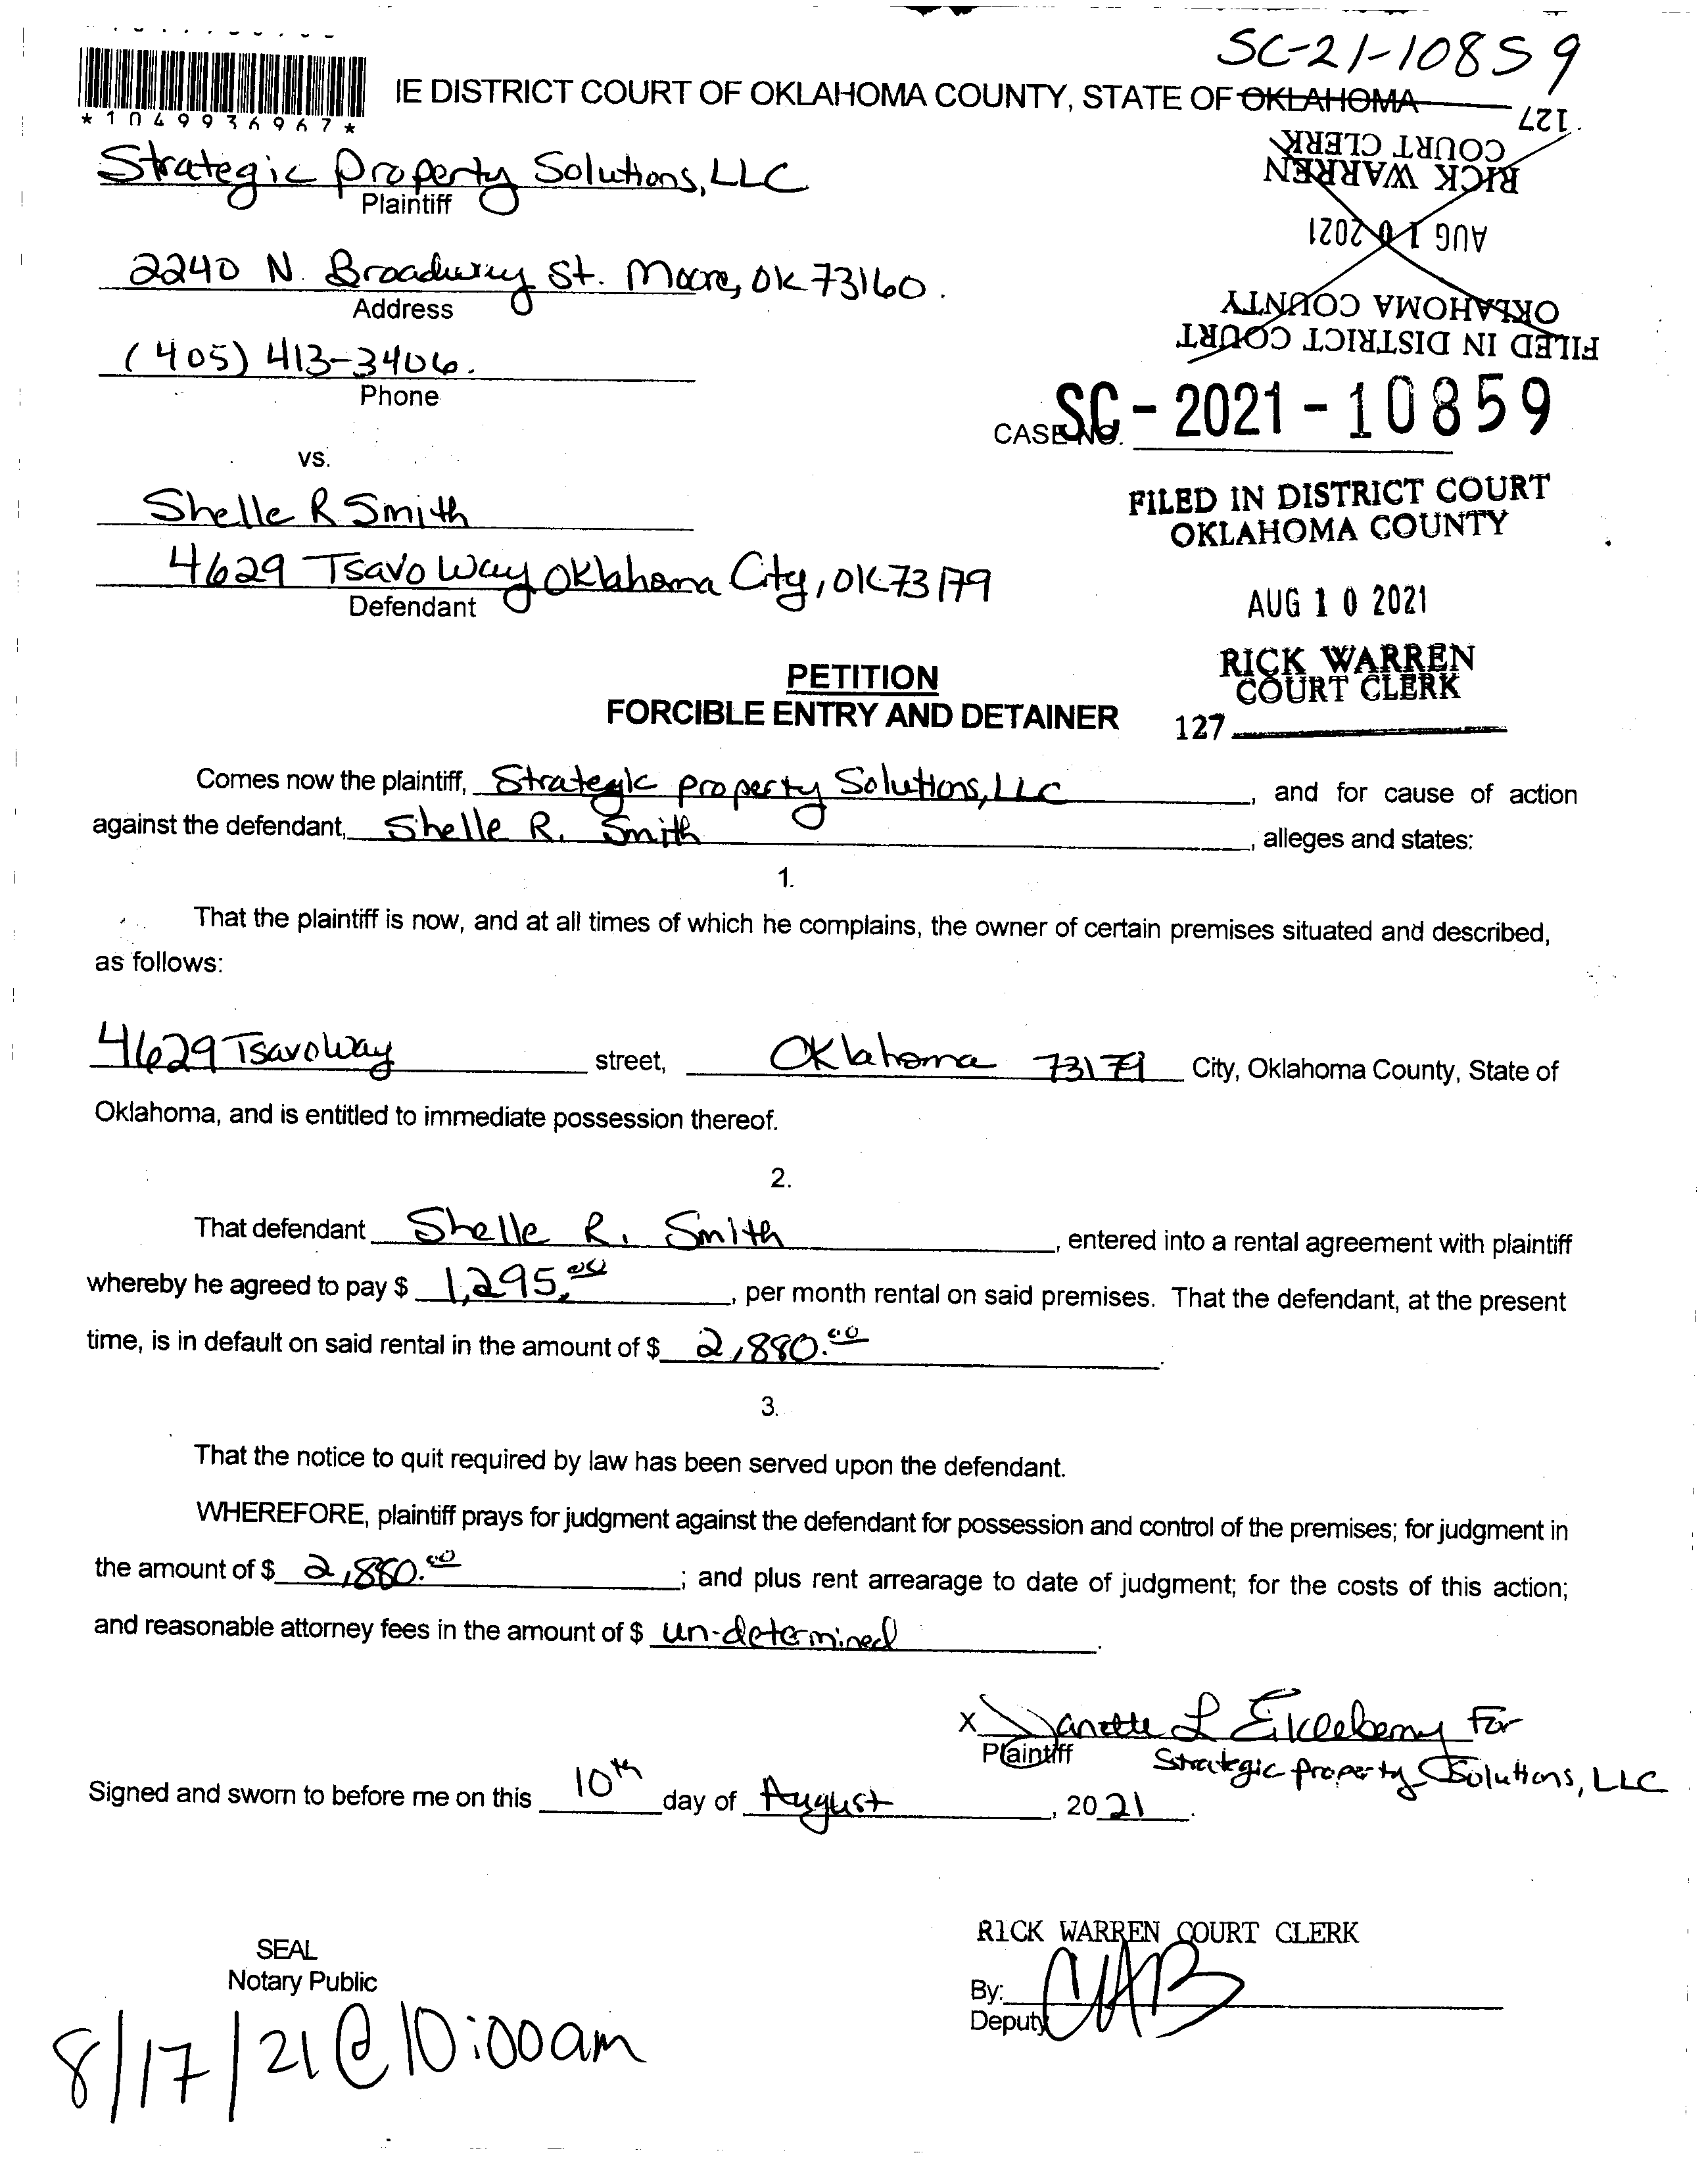 SC-21-10859
IE DISTRICT COURT OF OKLAHOMA COUNTY, STATE OF OKLAHOMA
*1049936967*
127
RICK WARREN
COURT CLERK
AUG 10 2021
OKLAHOMA COUNTY
FILED IN DISTRICT COURT
Strategic Property Solutions, LLC
Plaintiff
2240 N. Broadway St. Moore, OK 73160.
Address
(405) 413-3406.
Phone
CASE NO. SC-2021-10859
vs.
Shelle R Smith
4629 Tsavo Way Oklahoma City, OK 73179
Defendant
FILED IN DISTRICT COURT
OKLAHOMA COUNTY
AUG 10 2021
RICK WARREN
COURT CLERK
127
PETITION
FORCIBLE ENTRY AND DETAINER
Comes now the plaintiff, Strategic property Solutions, LLC, and for cause of action
against the defendant, Shelle R. Smith, alleges and states:
1.
That the plaintiff is now, and at all times of which he complains, the owner of certain premises situated and described,
as follows:
4629 Tsavo Way street, Oklahoma 73179 City, Oklahoma County, State of
Oklahoma, and is entitled to immediate possession thereof.
2.
That defendant Shelle R. Smith, entered into a rental agreement with plaintiff
whereby he agreed to pay $ 1,295.00, per month rental on said premises. That the defendant, at the present
time, is in default on said rental in the amount of $ 2,880.00.
3.
That the notice to quit required by law has been served upon the defendant.
WHEREFORE, plaintiff prays for judgment against the defendant for possession and control of the premises; for judgment in
the amount of $ 2,880.00; and plus rent arrearage to date of judgment; for the costs of this action;
and reasonable attorney fees in the amount of $ un-determined.
X Janette L Eikleberry For
Plaintiff Strategic property Solutions, LLC
Signed and sworn to before me on this 10th day of August, 2021.
RICK WARREN COURT CLERK
SEAL
Notary Public
By:
Deputy
8/17/21 @ 10:00am